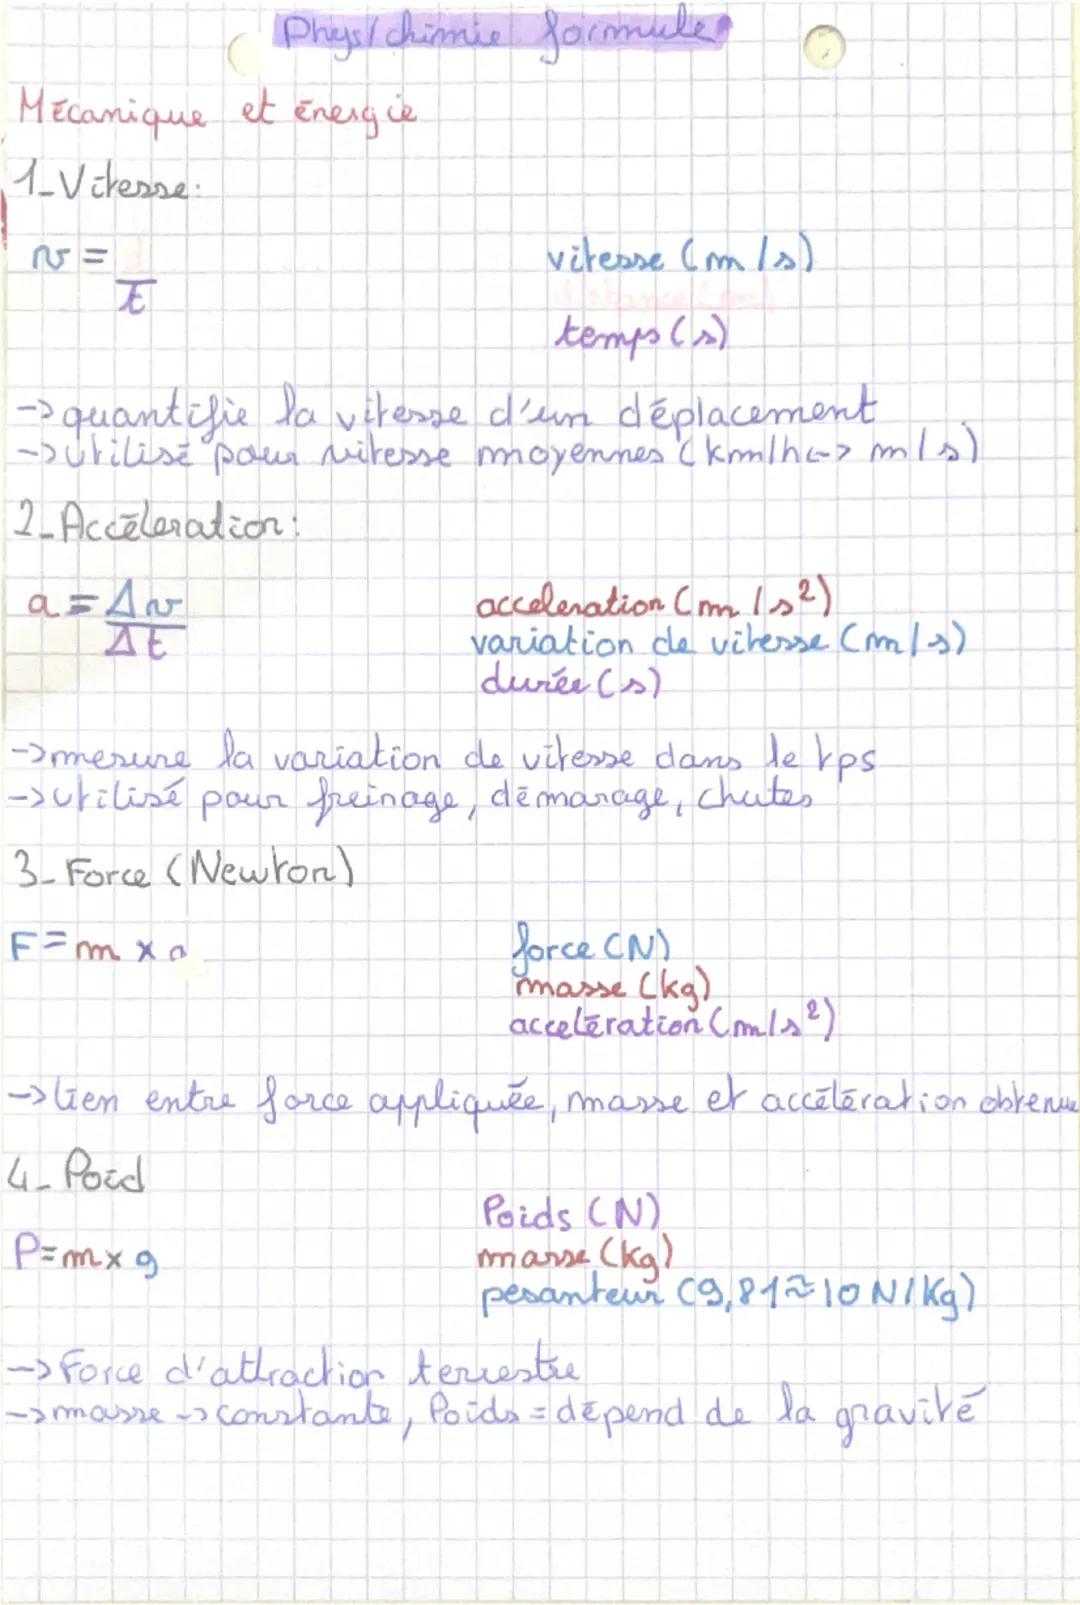 Phys/chimie formule
Mécanique et énergie
1_Vitesse:
v = d/t
vitesse (m/s)
distance (m)
temps (s)
->quantifie la vitesse d'un déplacement
->utilisé pour vitesse moyennes (km/h<-> m/s)
2_Accéleration:
a = Δv/Δt
acceleration (m/s²)
variation de vitesse (m/s)
durée (s)
->mesure la variation de vitesse dans le tps
->utilisé pour freinage, démarage, chutes
3_Force (Newton)
F = m x a
force (N)
masse (kg)
accelération (m/s²)
->lien entre force appliquée, masse et accélération obtenue
4_Poid
P=m x g
Poids (N)
masse (kg)
pesanteur (9,81≈10 N/Kg)
->Force d'attraction terrestre
->masse -> constante, Poids = dépend de la gravité